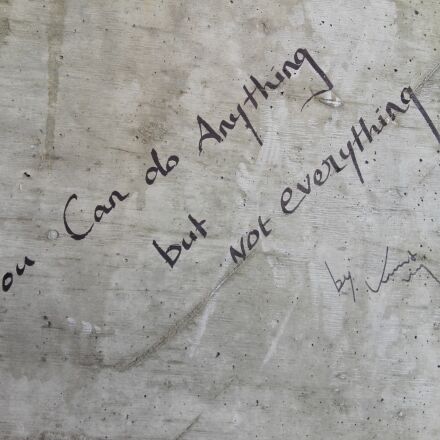 ou Can do Anything
but Not everything
by